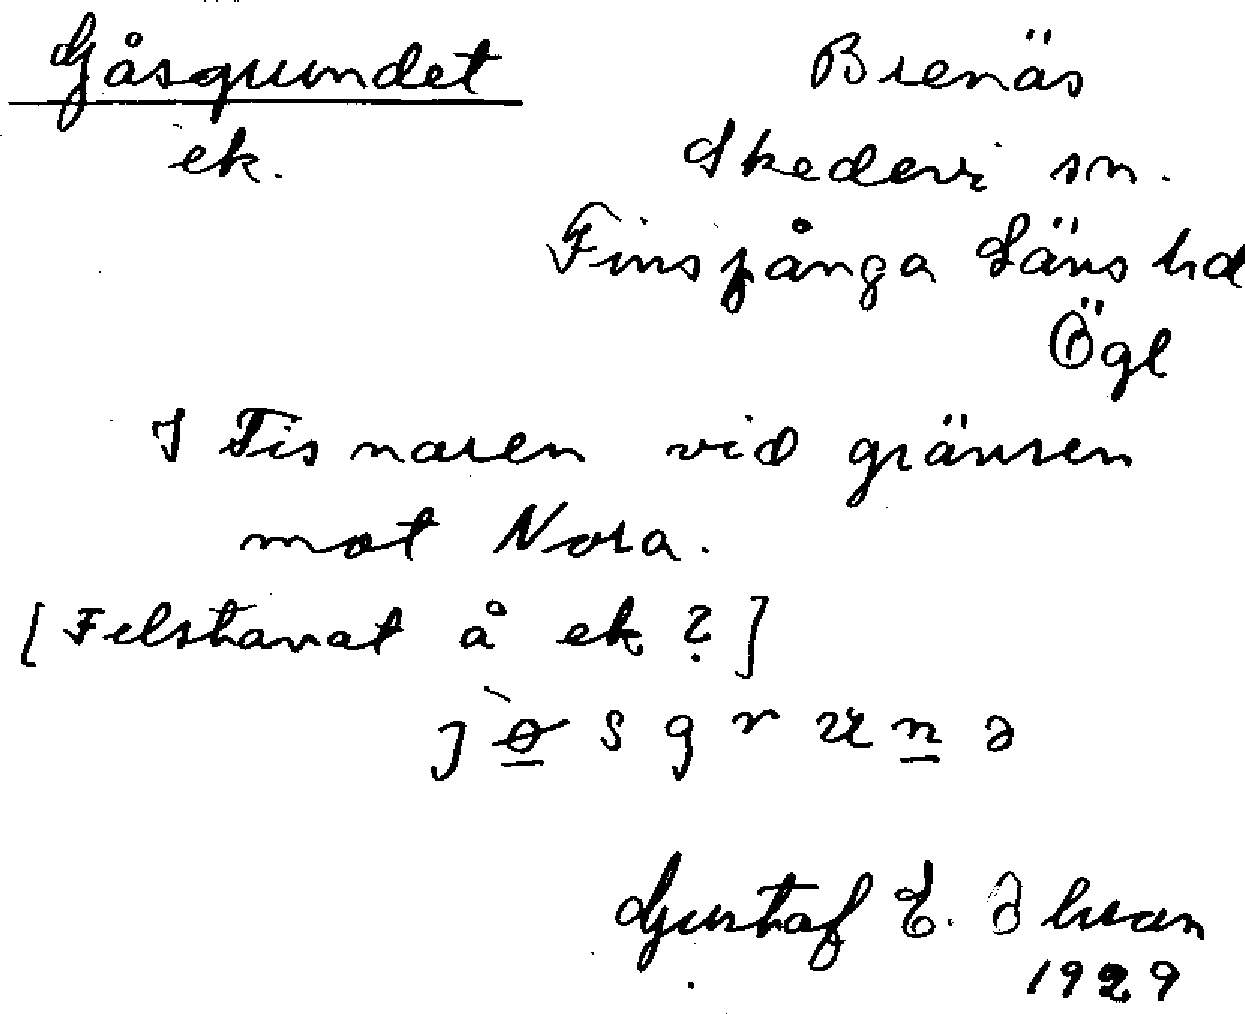 Gåsgrundet
ek.
Brenäs
Skedevi sn.
Finspånga Läns hd
Ögl
I Tisnaren vid gränsen
mot Nora.
[Felstavat å ek?]
Gustaf E.
1929